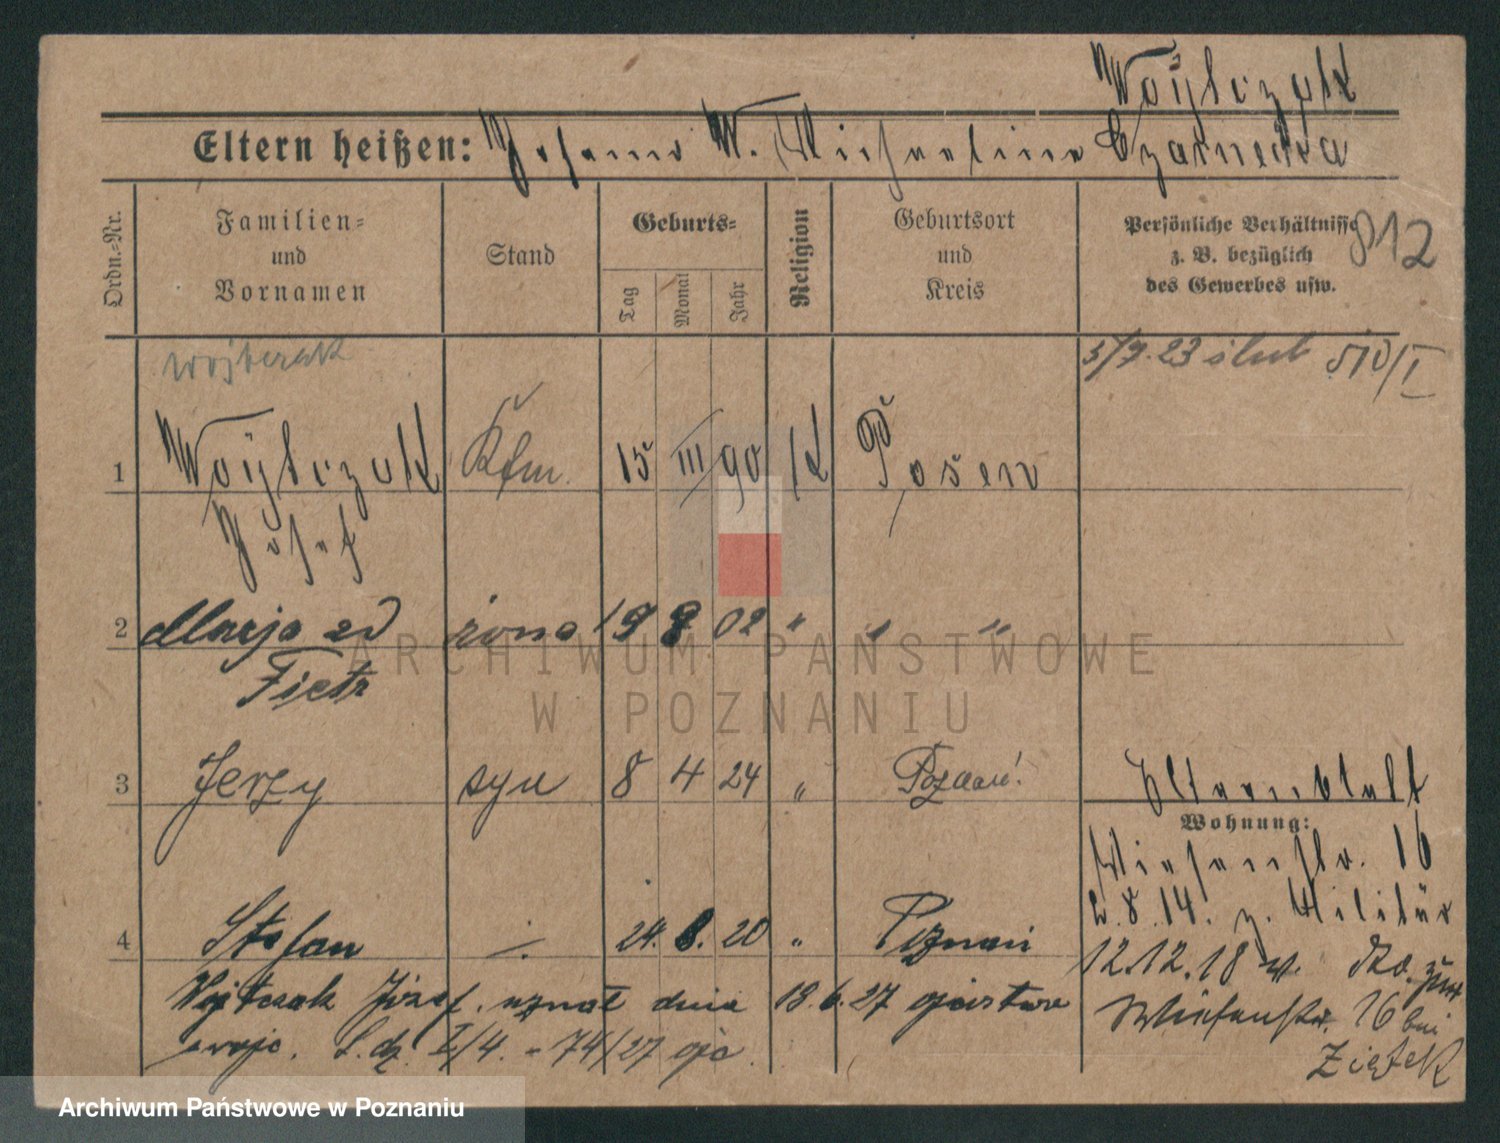 Woÿtczak
Eltern heißen: Johann W. Michaelina Czarnecka
Ordn.=Nr.
Familien=
und
Vornamen
Stand
Geburts=
Tag
Monat
Jahr
Religion
Geburtsort
und
Kreis
Persönliche Verhältnisse
z. B. bezüglich
des Gewerbes usw.
812
Wojtczak
5/7. 23 ślub
1 Woÿtczak Kfm. 15 III 90 K Posen
Josef
2 Marja zd żona 19 8 02 " " "
Fietz
3 Jerzy syn 8 4 24 " Poznań
Elternblatt
Wohnung:
Wiesenstr. 16
2. 8. 14. z. Militär
4 Stefan 24. 8. 20 " Poznań
12.12.18 v. zur
Wojtczak Józef uznał dnia 18.6.27 ojcostwo
Wiesenstr. 16 bei
swoje. L.dz. I/4. - 74/27
Ziętek
ARCHIWUM PAŃSTWOWE
W POZNANIU
Archiwum Państwowe w Poznaniu